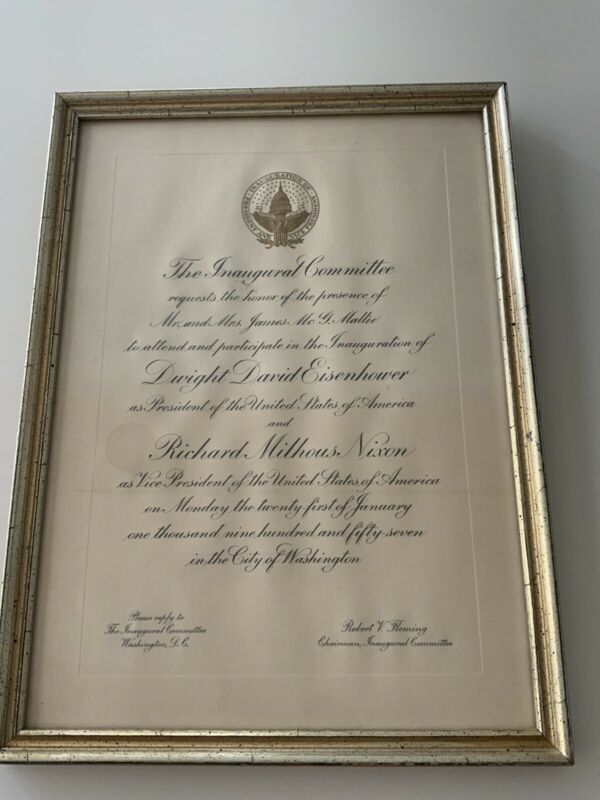 INAUGURATION OF
PRESIDENT AND VICE PRESIDENT
The Inaugural Committee
requests the honor of the presence of
Mr. and Mrs. James Mc G. Mallie
to attend and participate in the Inauguration of
Dwight David Eisenhower
as President of the United States of America
and
Richard Milhous Nixon
as Vice President of the United States of America
on Monday the twenty-first of January
one thousand nine hundred and fifty-seven
in the City of Washington
Please reply to
The Inaugural Committee
Washington, D.C.
Robert V. Fleming
Chairman, Inaugural Committee